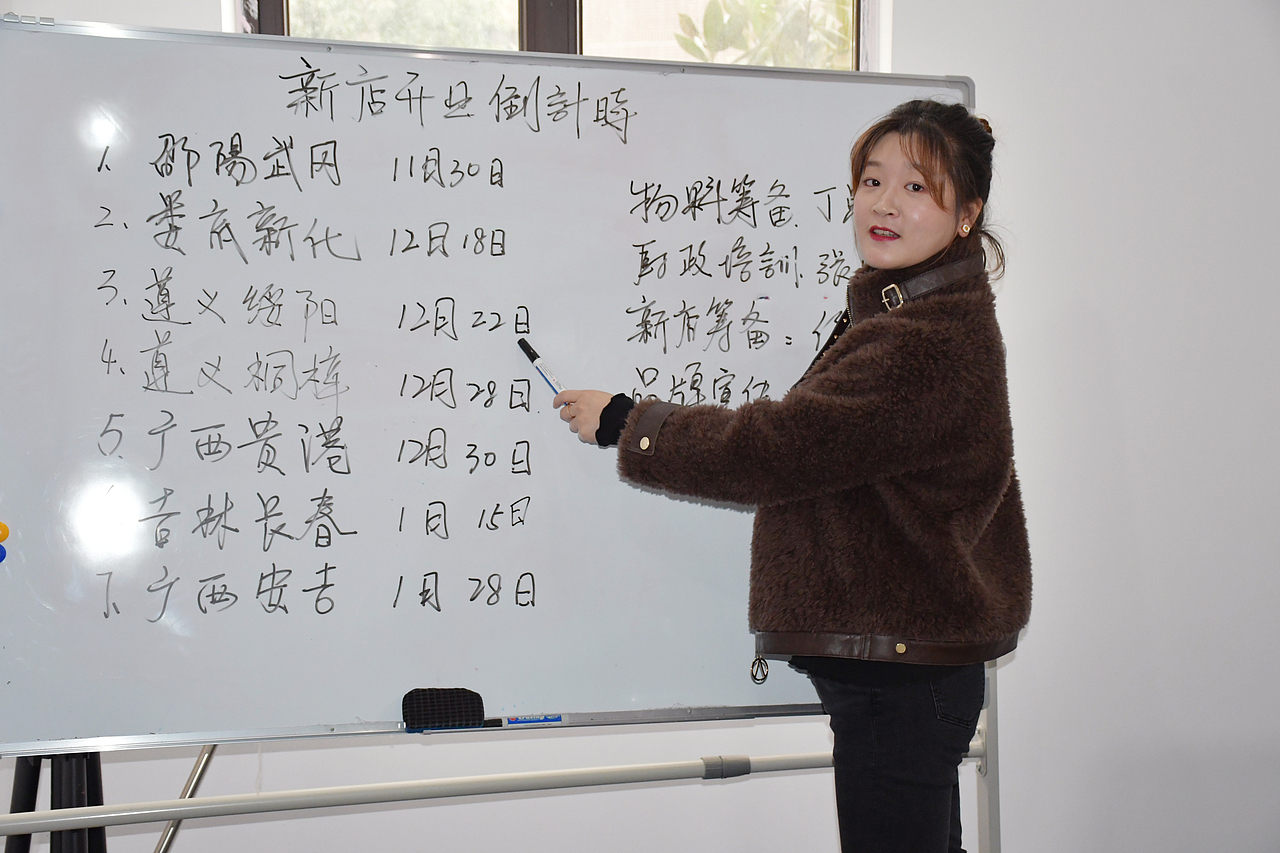 新店开业倒計時
1. 邵陽武冈 11月30日
2、娄底新化 12日18日
3、遵义绥阳 12月22日
4、遵义桐梓 12月28日
5、广西贵港 12月30日
吉林长春 1月15日
7、广西安吉 1月28日
物料筹备、丁
财政培訓、張
新店筹备：
品牌宣传